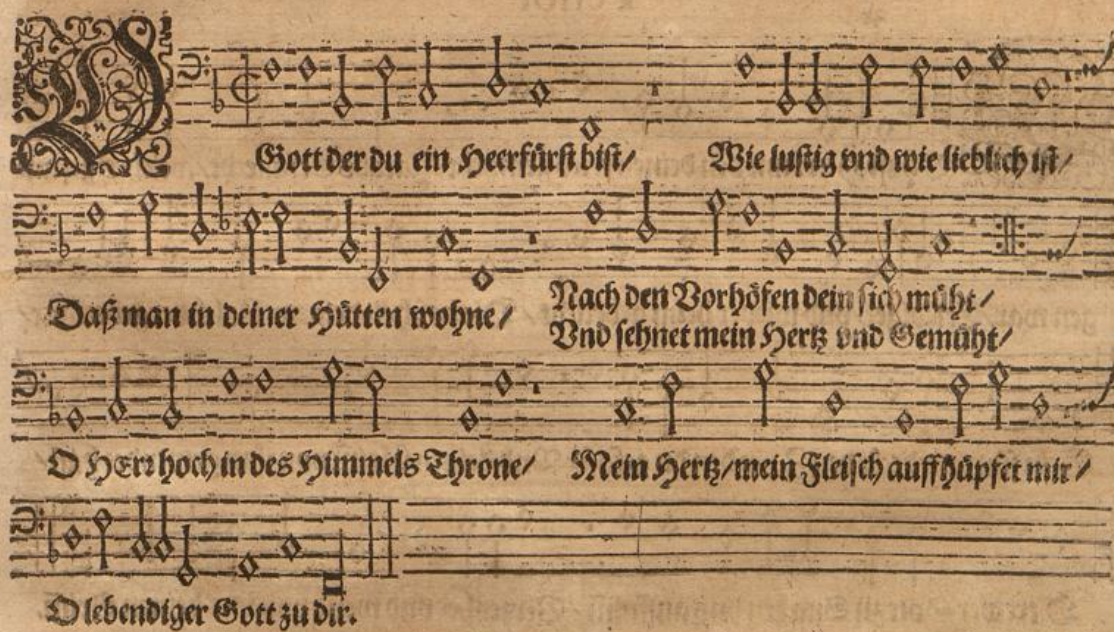 O Gott der du ein Heerfürst bist/ Wie lustig vnd wie lieblich ist/
Daß man in deiner Hütten wohne/ Nach den Vorhöfen dein sich müht/
Vnd sehnet mein Hertz vnd Gemüht/
O HErr hoch in des Himmels Throne/ Mein Hertz/mein Fleisch auffhüpfet mir/
O lebendiger Gott zu dir.